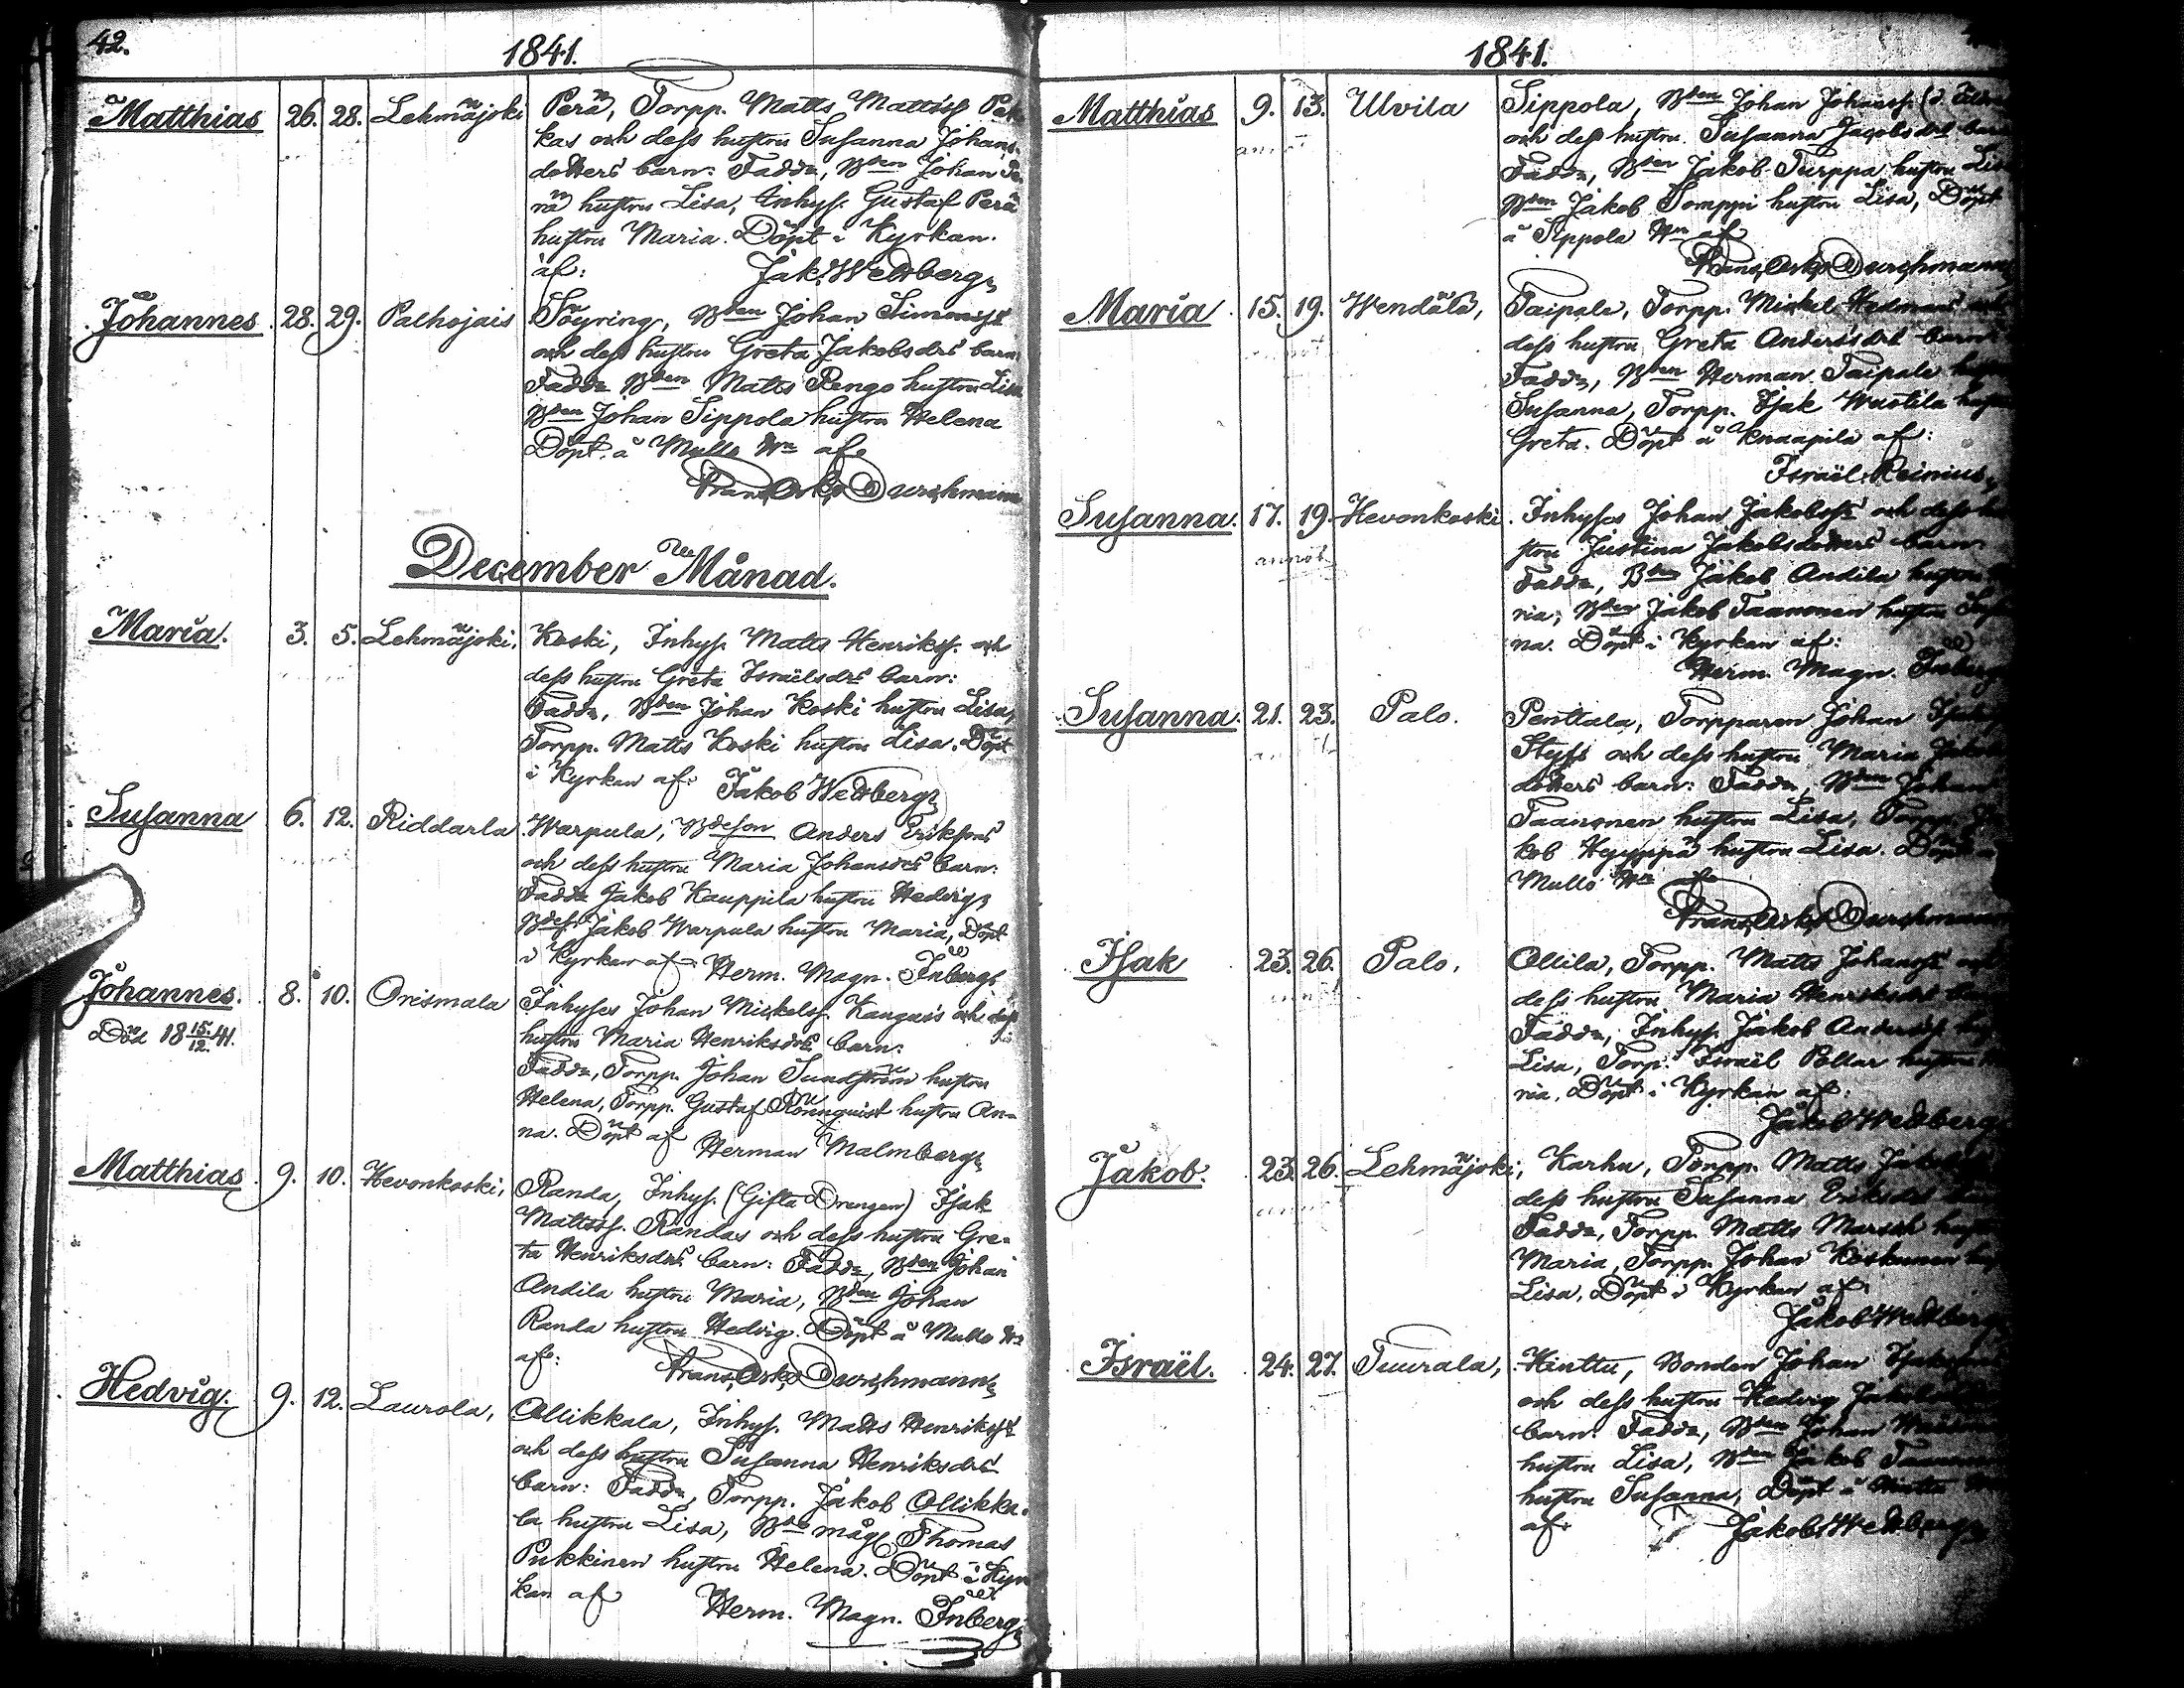 42.
1841.
Matthias 26. 28. Lehmäjoki Perä, Torpp. Matts Mattsss Pek
kas och dess hustru Susanna Johans-
dotters barn: Fadd:, Bden Johan Pe
rä hustru Lisa, Inhys. Gustaf Perä
hustru Maria. Döpt i Kyrkan
af: Jak. Wedberg
Johannes 28. 29. Palhojais Söyring, Bden Johan Simonss
och dess hustru Greta Jakobsdrs barn
Fadd: Bden Matts Rengo hustru Lisa
Bden Johan Sippola hustru Helena
Döpt å Mullo Hn af
Frans Osk. Durchmann
December Månad.
Maria. 3. 5. Lehmäjoki. Koski, Inhys. Matts Henrikss. och
dess hustru Greta Israëlsdrs barn:
Fadd:, Bden Johan Koski hustru Lisa,
Torpp. Matts Koski hustru Lisa. Döpt
i Kyrkan af: Jakob Wedberg
Susanna 6. 12. Riddarla Warpula, Bdeson Anders Erikssons
och dess hustru Maria Johansdrs barn:
Fadd: Jakob Kauppila hustru Hedvig
Bdes. Jakob Warpula hustru Maria, Döpt
i Kyrkan af Herm. Magn. Inberg
Johannes. 8. 10. Orismala Inhyses Johan Mickelss. Kangais och dess
Död 18 15/12 41. hustru Maria Henriksdrs barn:
Fadd:, Torpp. Johan Sundström hustru
Helena, Torpp. Gustaf Rönnquist hustru An-
na. Döpt af Herman Malmberg
Matthias 9. 10. Hevonkoski, Randa, Inhys. (Gifta Drengen) Isak
Mattsss. Randas och dess hustru Gre-
ta Henriksdrs barn: Fadd:, Bden Johan
Andila hustru Maria, Bden Johan
Randa hustru Hedvig. Döpt å Mullo Hn
af: Frans Osk. Durchmann
Hedvig. 9. 12. Laurola, Ollikkala, Inhys. Matts Henrikss
och dess hustru Susanna Henriksdrs
barn: Fadd:, Torpp. Jakob Ollikka-
la hustru Lisa, Bde måg Thomas
Pukkinen hustru Helena. Döpt i Kyr
kan af Herm. Magn. Inberg
1841.
Matthias 9. 13. Ulvila Sippola, Bden Johan Johanss. (d.
och dess hustru Susanna Jacobsdrs bar
Fadd:, Bden Jakob Turppa hustru Lis
Bden Jakob Somppi hustru Lisa, Döpt
å Sippola Hn af
Frans Osk. Durchmann
Maria 15. 19. Wendälä, Taipale, Torpp. Mickel Hedmans och
dess hustru Greta Andersdrs barn
Fadd:, Bden Herman Taipale
Susanna, Torpp. Isak Wästilä
Greta. Döpt å Knaapila af:
Israël Reinius
Susanna. 17. 19. Hevonkoski. Inhyses Johan Jakobss och dess hu
annot stru Justina Jakobsdotters barn.
Fadd:, Bden Jakob Andila hustru
ria, Bden Jakob Taanonen hustru Susan
na. Döpt i Kyrkan af:
Herm. Magn. Inberg
Susanna. 21. 23. Palo. Penttala, Torpparen Johan
Styfs och dess hustru Maria
dotters barn: Fadd:, Bden Johan
Taanonen hustru Lisa, Torpp.
kob Hyyppä hustru Lisa. Döpt å
Mullo Hn af
Frans Osk. Durchmann
Isak 23. 26. Palo, Ollila, Torpp. Matts Johanss och
dess hustru Maria Henriksdrs
Fadd:, Inhys. Jakob Anderss.
Lisa, Torp. Israël Pollar hustru
ria. Döpt i Kyrkan af:
Jakob Wedberg
Jakob. 23. 26. Lehmäjoki, Karhu, Torpp. Matts
dess hustru Susanna Eriksdrs
Fadd:, Torpp. Matts Marsch
Maria, Torpp. Johan Koskunen
Lisa, Döpt i Kyrkan af
Jakob Wedberg
Israël. 24. 27. Tuurala, Hinttu, Bonden Johan
och dess hustru Hedvig
barn: Fadd:, Bden Johan
hustru Lisa, Bden Jakob
hustru Susanna, Döpt å Hinttu
af: Jakob Wedberg